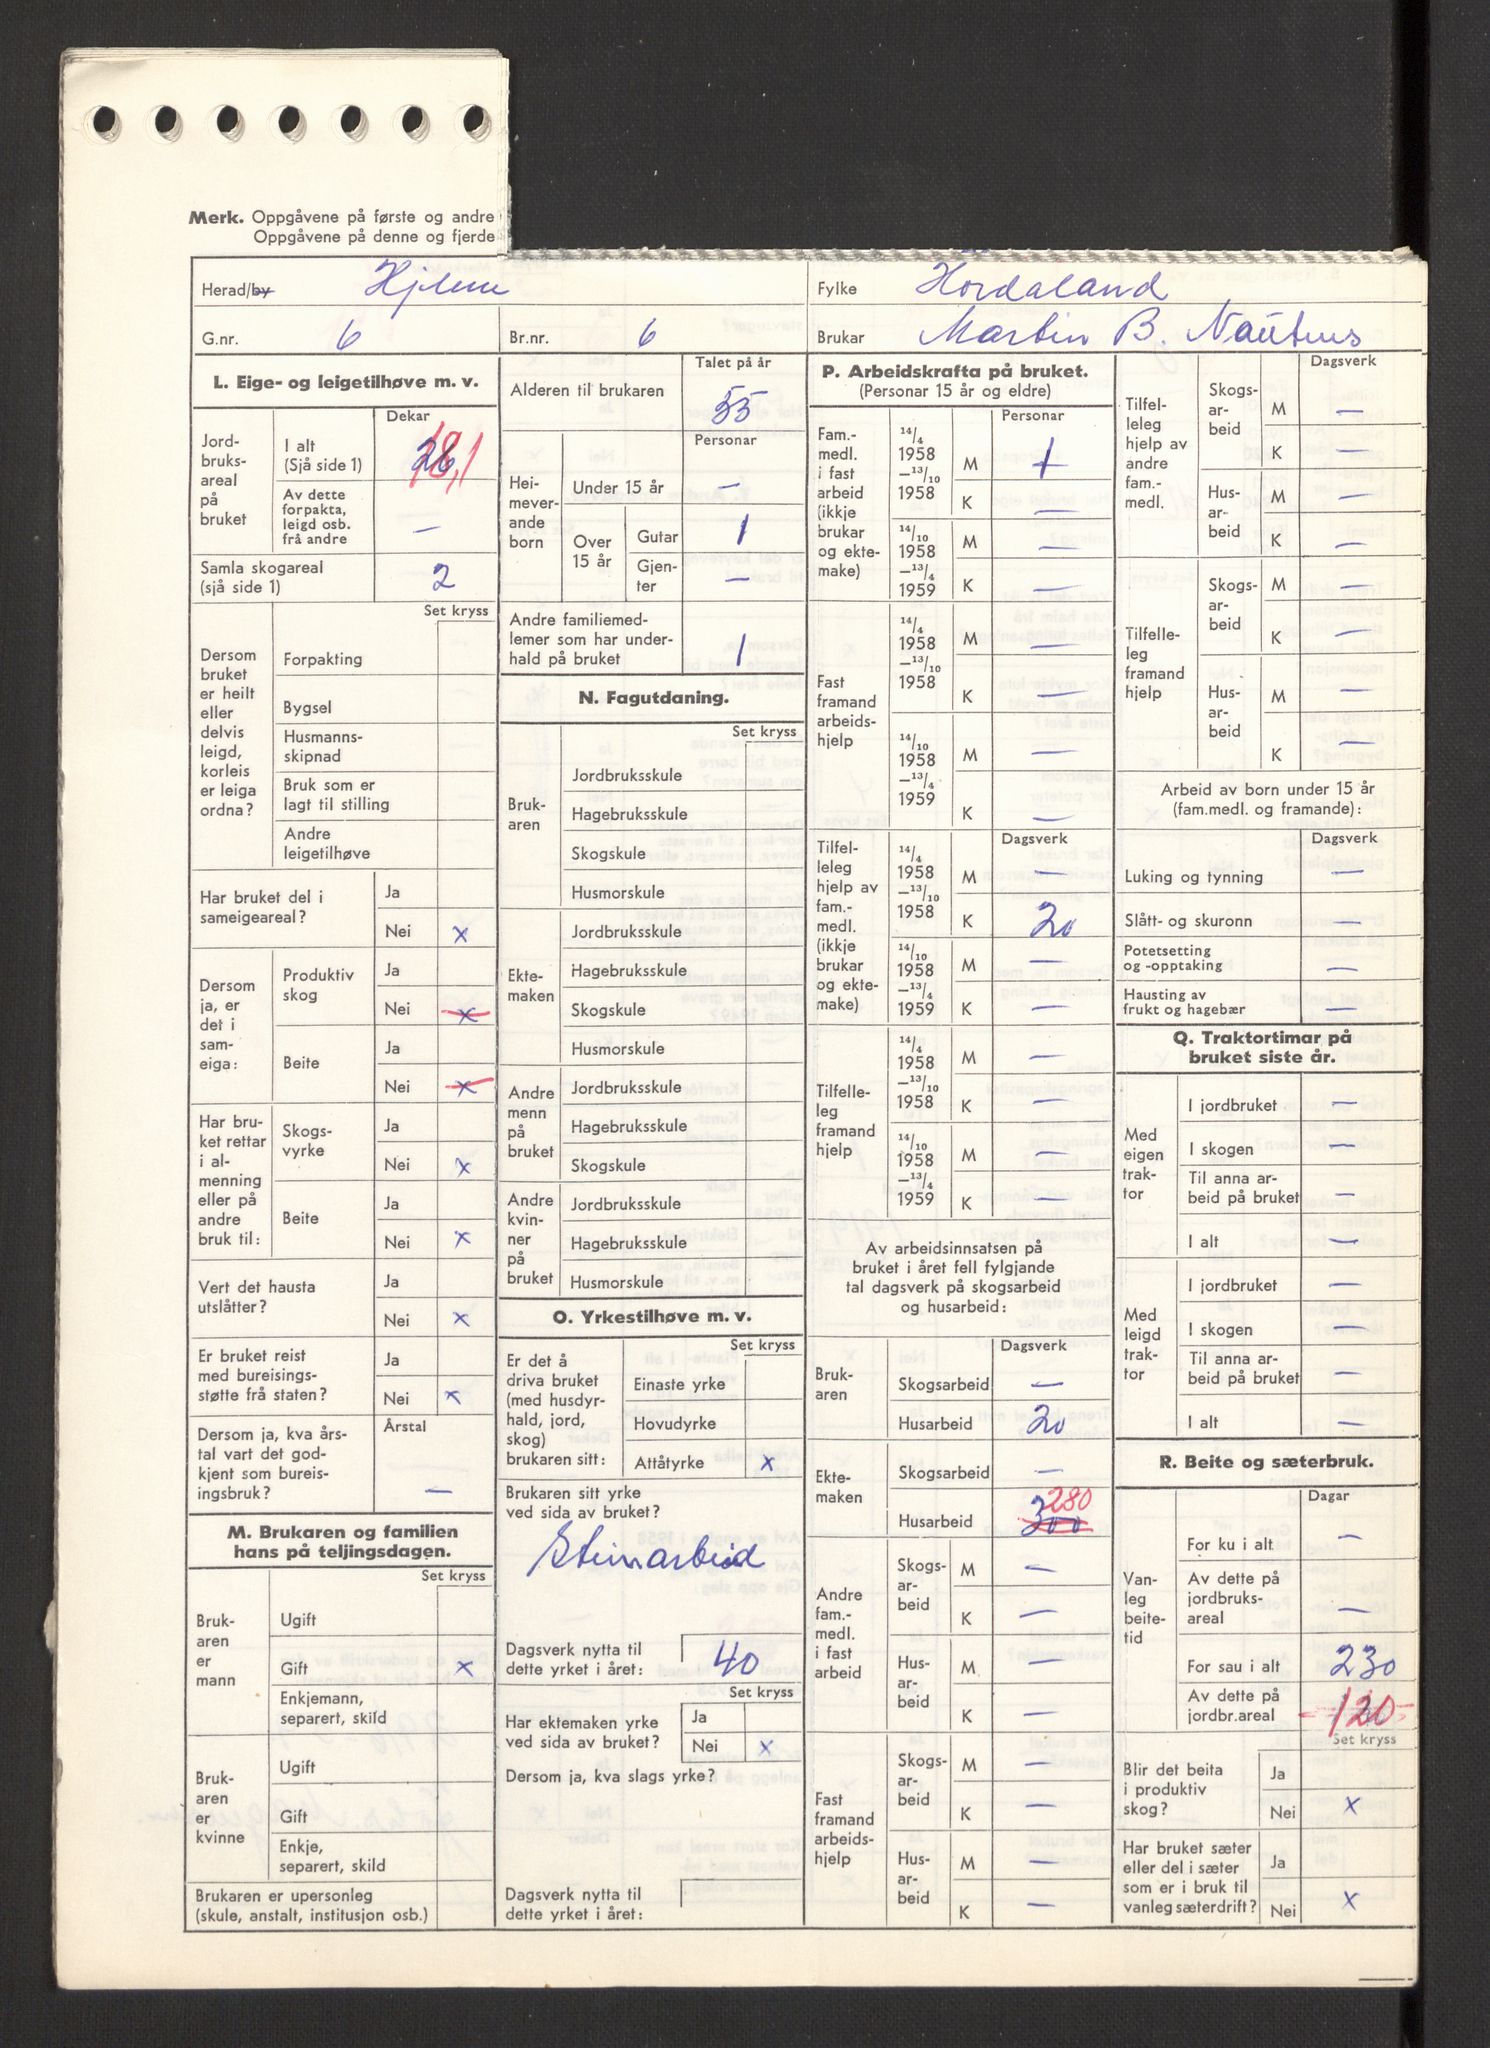 Merk. Oppgåvene på første og andre
Oppgåvene på denne og fjerde
Herad/by Hjelme
Fylke Hordaland
G.nr. 6
Br.nr. 6
Brukar Martin B. Nautnes
L. Eige- og leigetilhøve m. v.
Dekar
Jord-
bruks-
areal
på
bruket
I alt
(Sjå side 1) 26 18,1
Av dette
forpakta,
leigd osb.
frå andre —
Samla skogareal
(sjå side 1) 2
Set kryss
Dersom
bruket
er heilt
eller
delvis
leigd,
korleis
er leiga
ordna?
Forpakting
Bygsel
Husmanns-
skipnad
Bruk som er
lagt til stilling
Andre
leigetilhøve
Har bruket del i
sameigeareal?
Ja
Nei x
Dersom
ja, er
det i
sam-
eiga:
Produktiv
skog
Ja
Nei x
Beite
Ja
Nei x
Har bru-
ket rettar
i al-
menning
eller på
andre
bruk til:
Skogs-
vyrke
Ja
Nei x
Beite
Ja
Nei x
Vert det hausta
utslåtter?
Ja
Nei x
Er bruket reist
med bureisings-
støtte frå staten?
Ja
Nei x
Dersom ja, kva års-
tal vart det god-
kjent som bureis-
ingsbruk?
Årstal
—
M. Brukaren og familien
hans på teljingsdagen.
Set kryss
Bruk-
aren
er
mann
Ugift
Gift x
Enkjemann,
separert, skild
Bruk-
aren
er
kvinne
Ugift
Gift
Enkje,
separert, skild
Brukaren er upersonleg
(skule, anstalt, institusjon osb.)
Talet på år
Alderen til brukaren 55
Personar
Hei-
mever-
ande
born
Under 15 år —
Over
15 år
Gutar 1
Gjen-
ter —
Andre familiemed-
lemer som har under-
hald på bruket 1
N. Fagutdaning.
Set kryss
Bruk-
aren
Jordbruksskule
Hagebruksskule
Skogskule
Husmorskule
Ekte-
maken
Jordbruksskule
Hagebruksskule
Skogskule
Husmorskule
Andre
menn
på
bruket
Jordbruksskule
Hagebruksskule
Skogskule
Andre
kvin-
ner
på
bruket
Jordbruksskule
Hagebruksskule
Husmorskule
O. Yrkestilhøve m. v.
Set kryss
Er det å
driva bruket
(med husdyr-
hald, jord,
skog)
brukaren sitt:
Einaste yrke
Hovudyrke
Attåtyrke x
Brukaren sitt yrke
ved sida av bruket?
Steinarbeid
Dagsverk nytta til
dette yrket i året: 40
Set kryss
Har ektemaken yrke
ved sida av bruket?
Ja
Nei x
Dersom ja, kva slags yrke?
Dagsverk nytta til
dette yrket i året:
P. Arbeidskrafta på bruket.
(Personar 15 år og eldre)
Personar
Fam.-
medl.
i fast
arbeid
(ikkje
brukar
og ekte-
make)
14/4
1958
—13/10
1958
M 1
K —
14/10
1958
—13/4
1959
M —
K —
Fast
framand
arbeids-
hjelp
14/4
1958
—13/10
1958
M —
K —
14/10
1958
—13/4
1959
M —
K —
Dagsverk
Tilfel-
leleg
hjelp av
fam.-
medl.
(ikkje
brukar
og ekte-
make)
14/4
1958
—13/10
1958
M —
K 20
14/10
1958
—13/4
1959
M —
K —
Tilfelle-
leg
framand
hjelp
14/4
1958
—13/10
1958
M —
K —
14/10
1958
—13/4
1959
M —
K —
Av arbeidsinnsatsen på
bruket i året fell fylgjande
tal dagsverk på skogsarbeid
og husarbeid:
Dagsverk
Bruk-
aren
Skogsarbeid —
Husarbeid 20
Ekte-
maken
Skogsarbeid —
280
Husarbeid 300
Andre
fam.-
medl.
i fast
arbeid
Skogs-
ar-
beid
M —
K —
Hus-
ar-
beid
M —
K —
Fast
framand
arbeids-
hjelp
Skogs-
ar-
beid
M —
K —
Hus-
ar-
beid
M —
K —
Dagsverk
Tilfel-
leleg
hjelp av
andre
fam.-
medl.
Skogs-
ar-
beid
M —
K —
Hus-
ar-
beid
M —
K —
Tilfelle-
leg
framand
hjelp
Skogs-
ar-
beid
M —
K —
Hus-
ar-
beid
M —
K —
Arbeid av born under 15 år
(fam.medl. og framande):
Dagsverk
Luking og tynning —
Slått- og skuronn —
Potetsetting
og -opptaking —
Hausting av
frukt og hagebær —
Q. Traktortimar på
bruket siste år.
Med
eigen
trak-
tor
I jordbruket —
I skogen —
Til anna ar-
beid på bruket —
I alt —
Med
leigd
trak-
tor
I jordbruket —
I skogen —
Til anna ar-
beid på bruket —
I alt —
R. Beite og sæterbruk.
Dagar
Van-
leg
beite-
tid
For ku i alt —
Av dette på
jordbruks-
areal —
For sau i alt 230
Av dette på
jordbr.areal 120
Set kryss
Blir det beita
i produktiv
skog?
Ja
Nei x
Har bruket sæter
eller del i sæter
som er i bruk til
vanleg sæterdrift?
Ja
Nei x